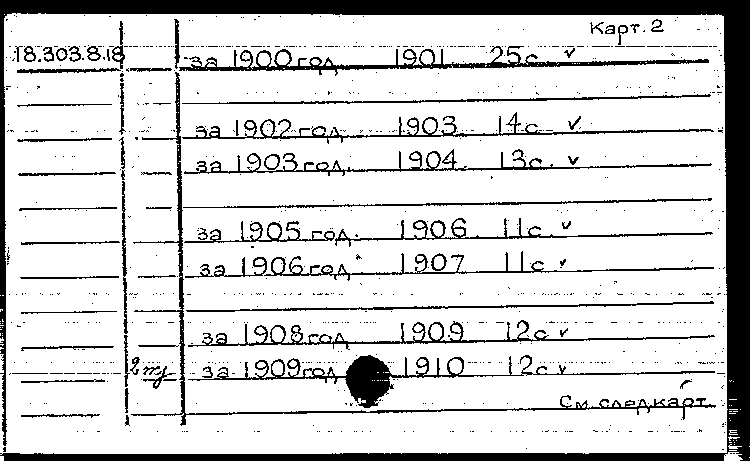 Карт. 2
18.303.8.18 за 1900 год 1901 25с ✓
за 1902 год. 1903. 14с ✓
за 1903 год. 1904. 13с. ✓
за 1905 год. 1906. 11с ✓
за 1906 год. 1907 11с ✓
за 1908 год 1909 12с ✓
за 1909 год 1910 12с ✓
См. след карт.